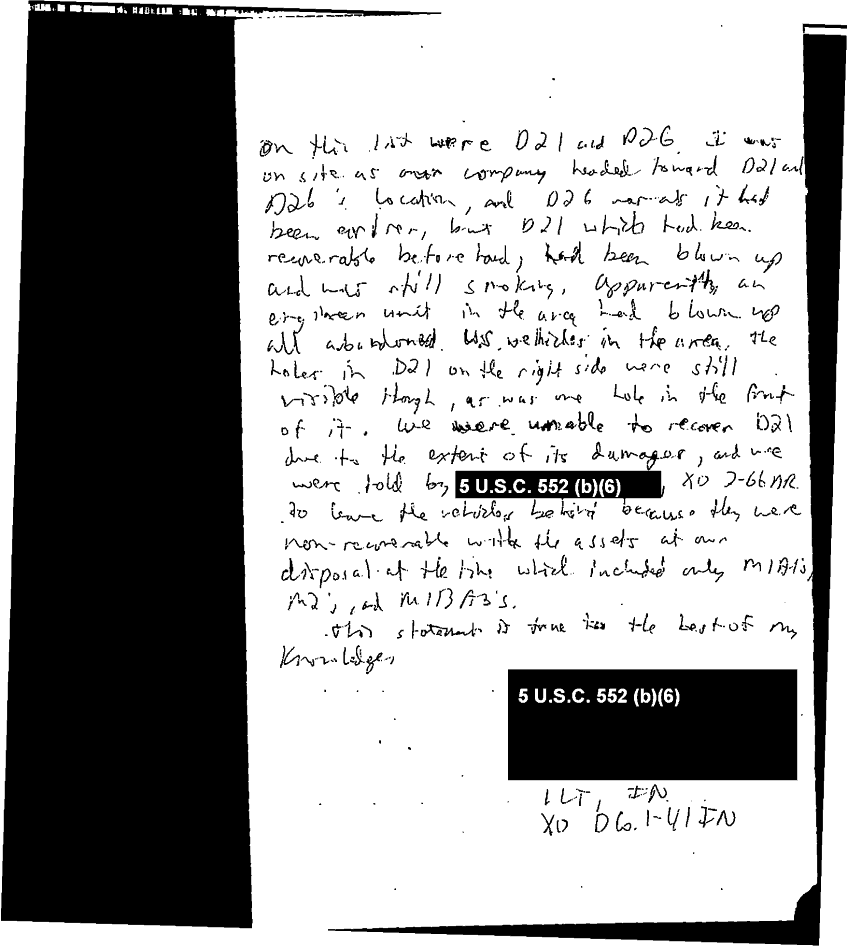 on this list were D21 and D26. I was
on site as our company headed toward D21 and
D26's location, and D26 was as it had
been earlier, but D21 which had been
recoverable beforehand, had been blown up
and was still smoking. Apparently an
engineer unit in the area had blown up
all abandoned U.S. vehicles in the area. The
holes in D21 on the right side were still
visible though, as was one hole in the front
of it. We were unable to recover D21
due to the extent of its damages, and we
were told by 5 U.S.C. 552 (b)(6), XO 2-66 AR
to leave the vehicles behind because they were
non-recoverable with the assets at our
disposal at the time which included only M1A1's,
M2's, and M113A3's.
This statement is true to the best of my
Knowledge,
5 U.S.C. 552 (b)(6)
1LT, IN
XO D Co. 1-41 IN